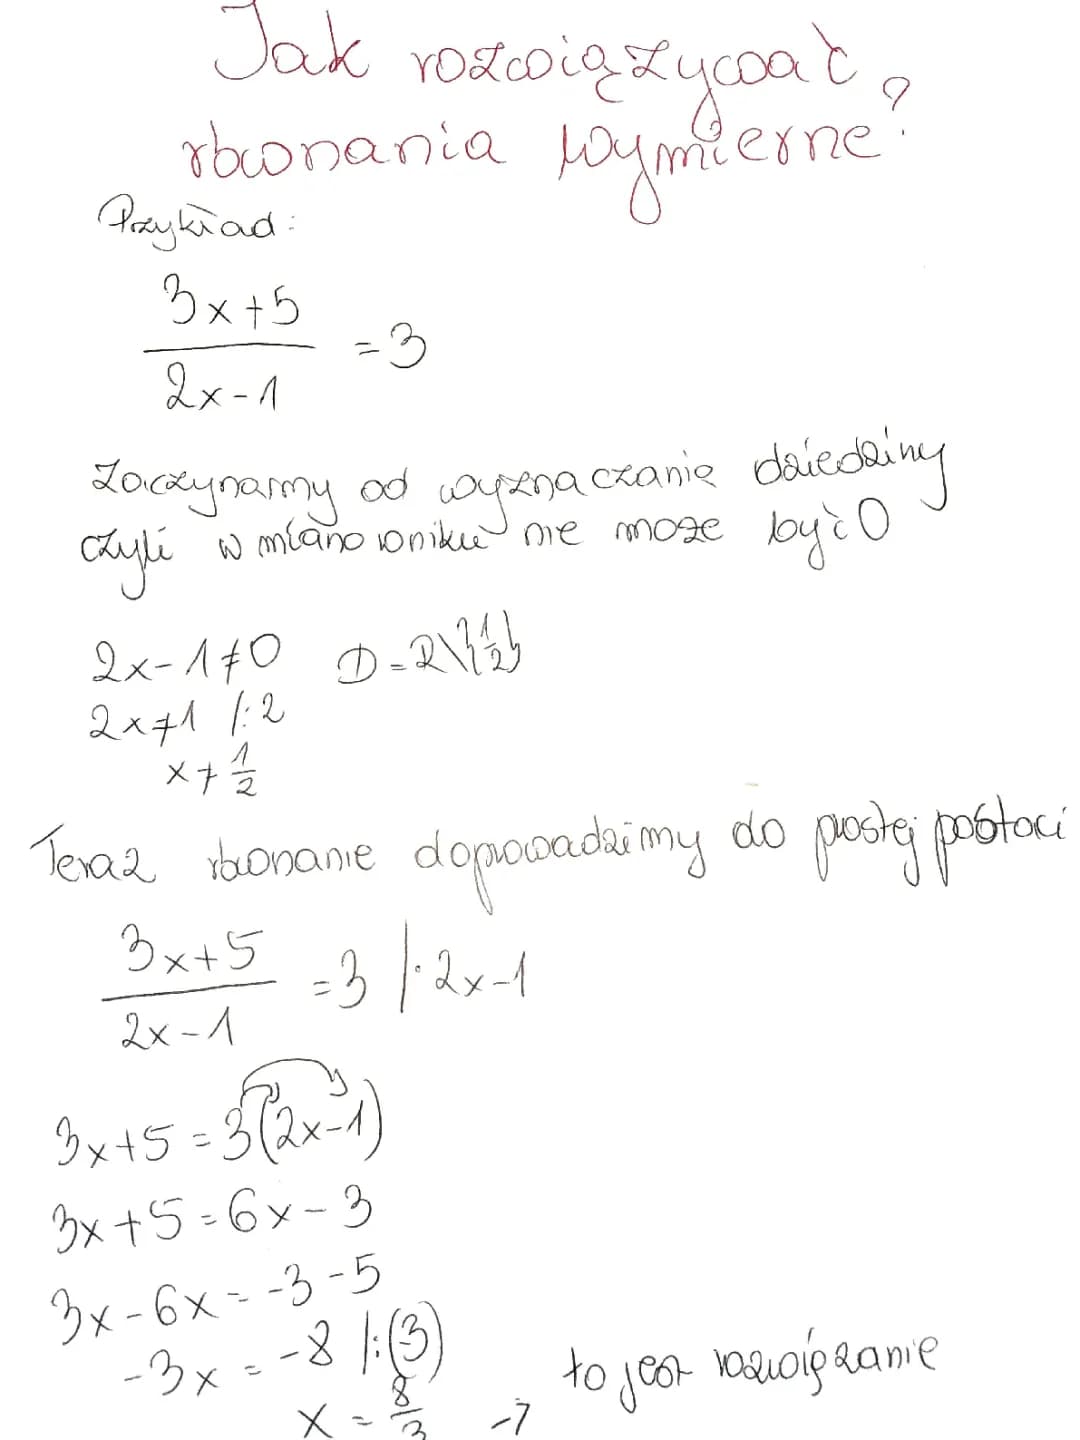 Jak rozwiązywać
równania wymierne?
Przykład:
3x+5
2x-1
=3
Zaczynamy od wyznaczanie dziedziny
czyli w mianowniku nie może być 0
2x-1≠0 D=R\{1/2}
2x≠1 /:2
x≠1/2
Teraz równanie doprowadzimy do prostej postaci
3x+5
2x-1
=3 /·2x-1
3x+5=3(2x-1)
3x+5=6x-3
3x-6x=-3-5
-3x=-8 /:(3)
x=8/3 → to jest rozwiązanie